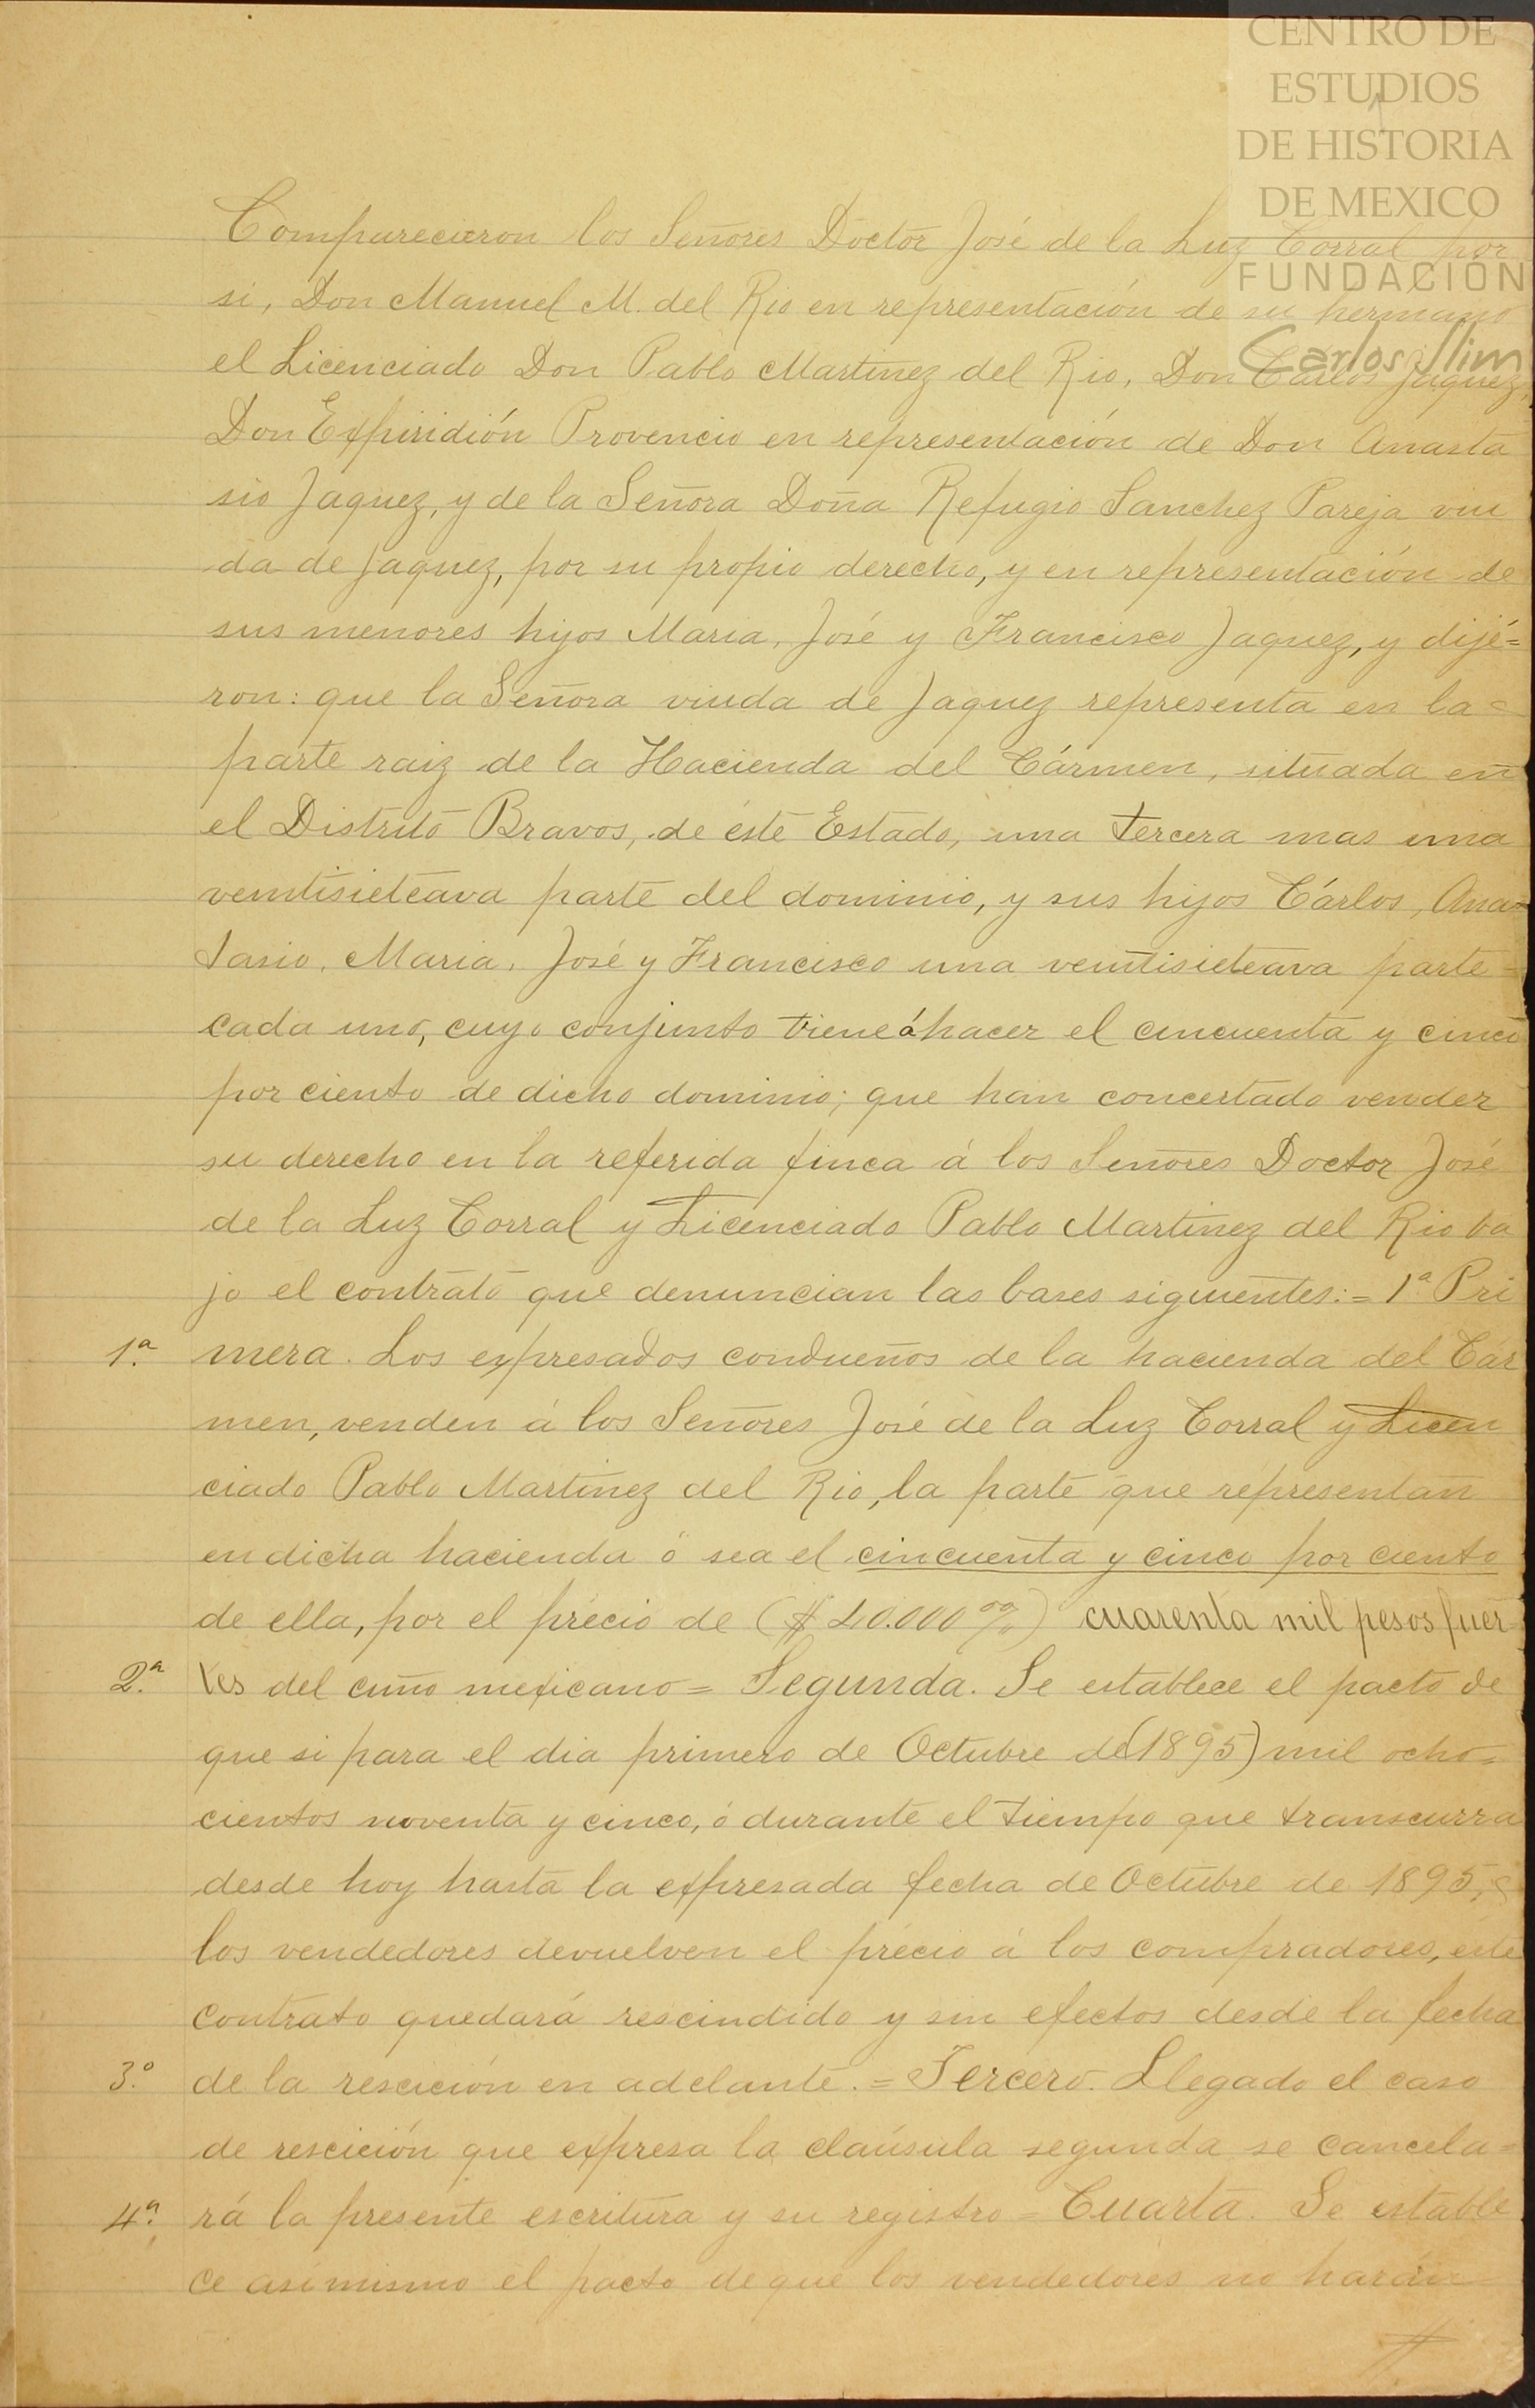 CENTRO DE
ESTUDIOS
DE HISTORIA
DE MEXICO
FUNDACIÓN
Carlos Slim
Comparecieron los Señores Doctor José de la Luz Corral por
si, Don Manuel M. del Rio en representación de su hermano
el Licenciado Don Pablo Martinez del Rio, Don Cárlos Jaquez,
Don Expiridión Provencio en representación de Don Anasta
sio Jaquez, y de la Señora Doña Refugio Sanchez Pareja viu
da de Jaquez, por su propio derecho, y en representación de
sus menores hijos Maria, José y Francisco Jaquez, y dijé=
ron: que la Señora viuda de Jaquez representa en la=
parte raiz de la Hacienda del Cármen, situada en
el Distrito Bravos, de éste Estado, una tercera mas una
ventisieteava parte del dominio, y sus hijos Cárlos, Ana=
tasio, Maria, José y Francisco una ventisieteava parte=
cada uno, cuyo conjunto tiene á hacer el cincuenta y cinco
por ciento de dicho dominio; que han concertado vender
su derecho en la referida finca á los Señores Doctor José
de la Luz Corral y Licenciado Pablo Martinez del Rio ba
jo el contrato que denuncian las bases siguientes:= 1ª Pri
1ª. mera. Los expresados condueños de la hacienda del Cár
men, venden á los Señores José de la Luz Corral y Licen
ciado Pablo Martinez del Rio, la parte que representan
en dicha hacienda ó sea el cincuenta y cinco por ciento
de ella, por el précio de ($ 40.000 00/00) cuarenta mil pesos fuer=
2ª. tes del cuño mexicano= Segunda. Se establece el pacto de
que si para el dia primero de Octubre de (1895) mil ocho=
cientos noventa y cinco, ó durante el tiempo que transcurra
desde hoy hasta la expresada fecha de Octubre de 1895,
los vendedores devuelven el précio á los compradores, este
contrato quedará rescindido y sin efectos desde la fecha
3º. de la rescición en adelante.= Tercero. Llegado el caso
de rescición que expresa la claúsula segunda se cancela=
4ª. rá la presente escritura y su registro= Cuarta. Se estable
ce asimismo el pacto de que los vendedores no harán